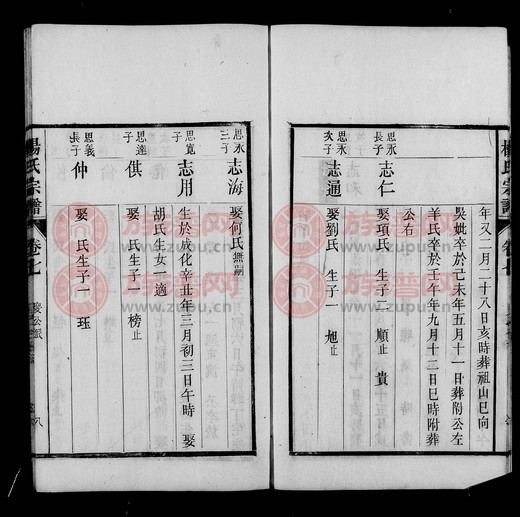 楊氏宗譜
卷七
年又二月二十八日亥時葬祖山巳向
吳妣卒於己未年五月十一日葬附公左
羊氏卒於壬午年九月十二日巳時附葬
公右
思永長子
志仁
娶項氏 生子二 順止 貴
思永次子
志通
娶劉氏 生子一 旭止
思永三子
志海
娶何氏無嗣
思寬子
志用
生於成化辛丑年三月初三日午時 娶
胡氏生女一適
思達子
倛
娶 氏生子一 榜止
思義長子
仲
娶 氏生子一 珏
楊氏宗譜
卷七
八
族谱网
www.zupu.cn